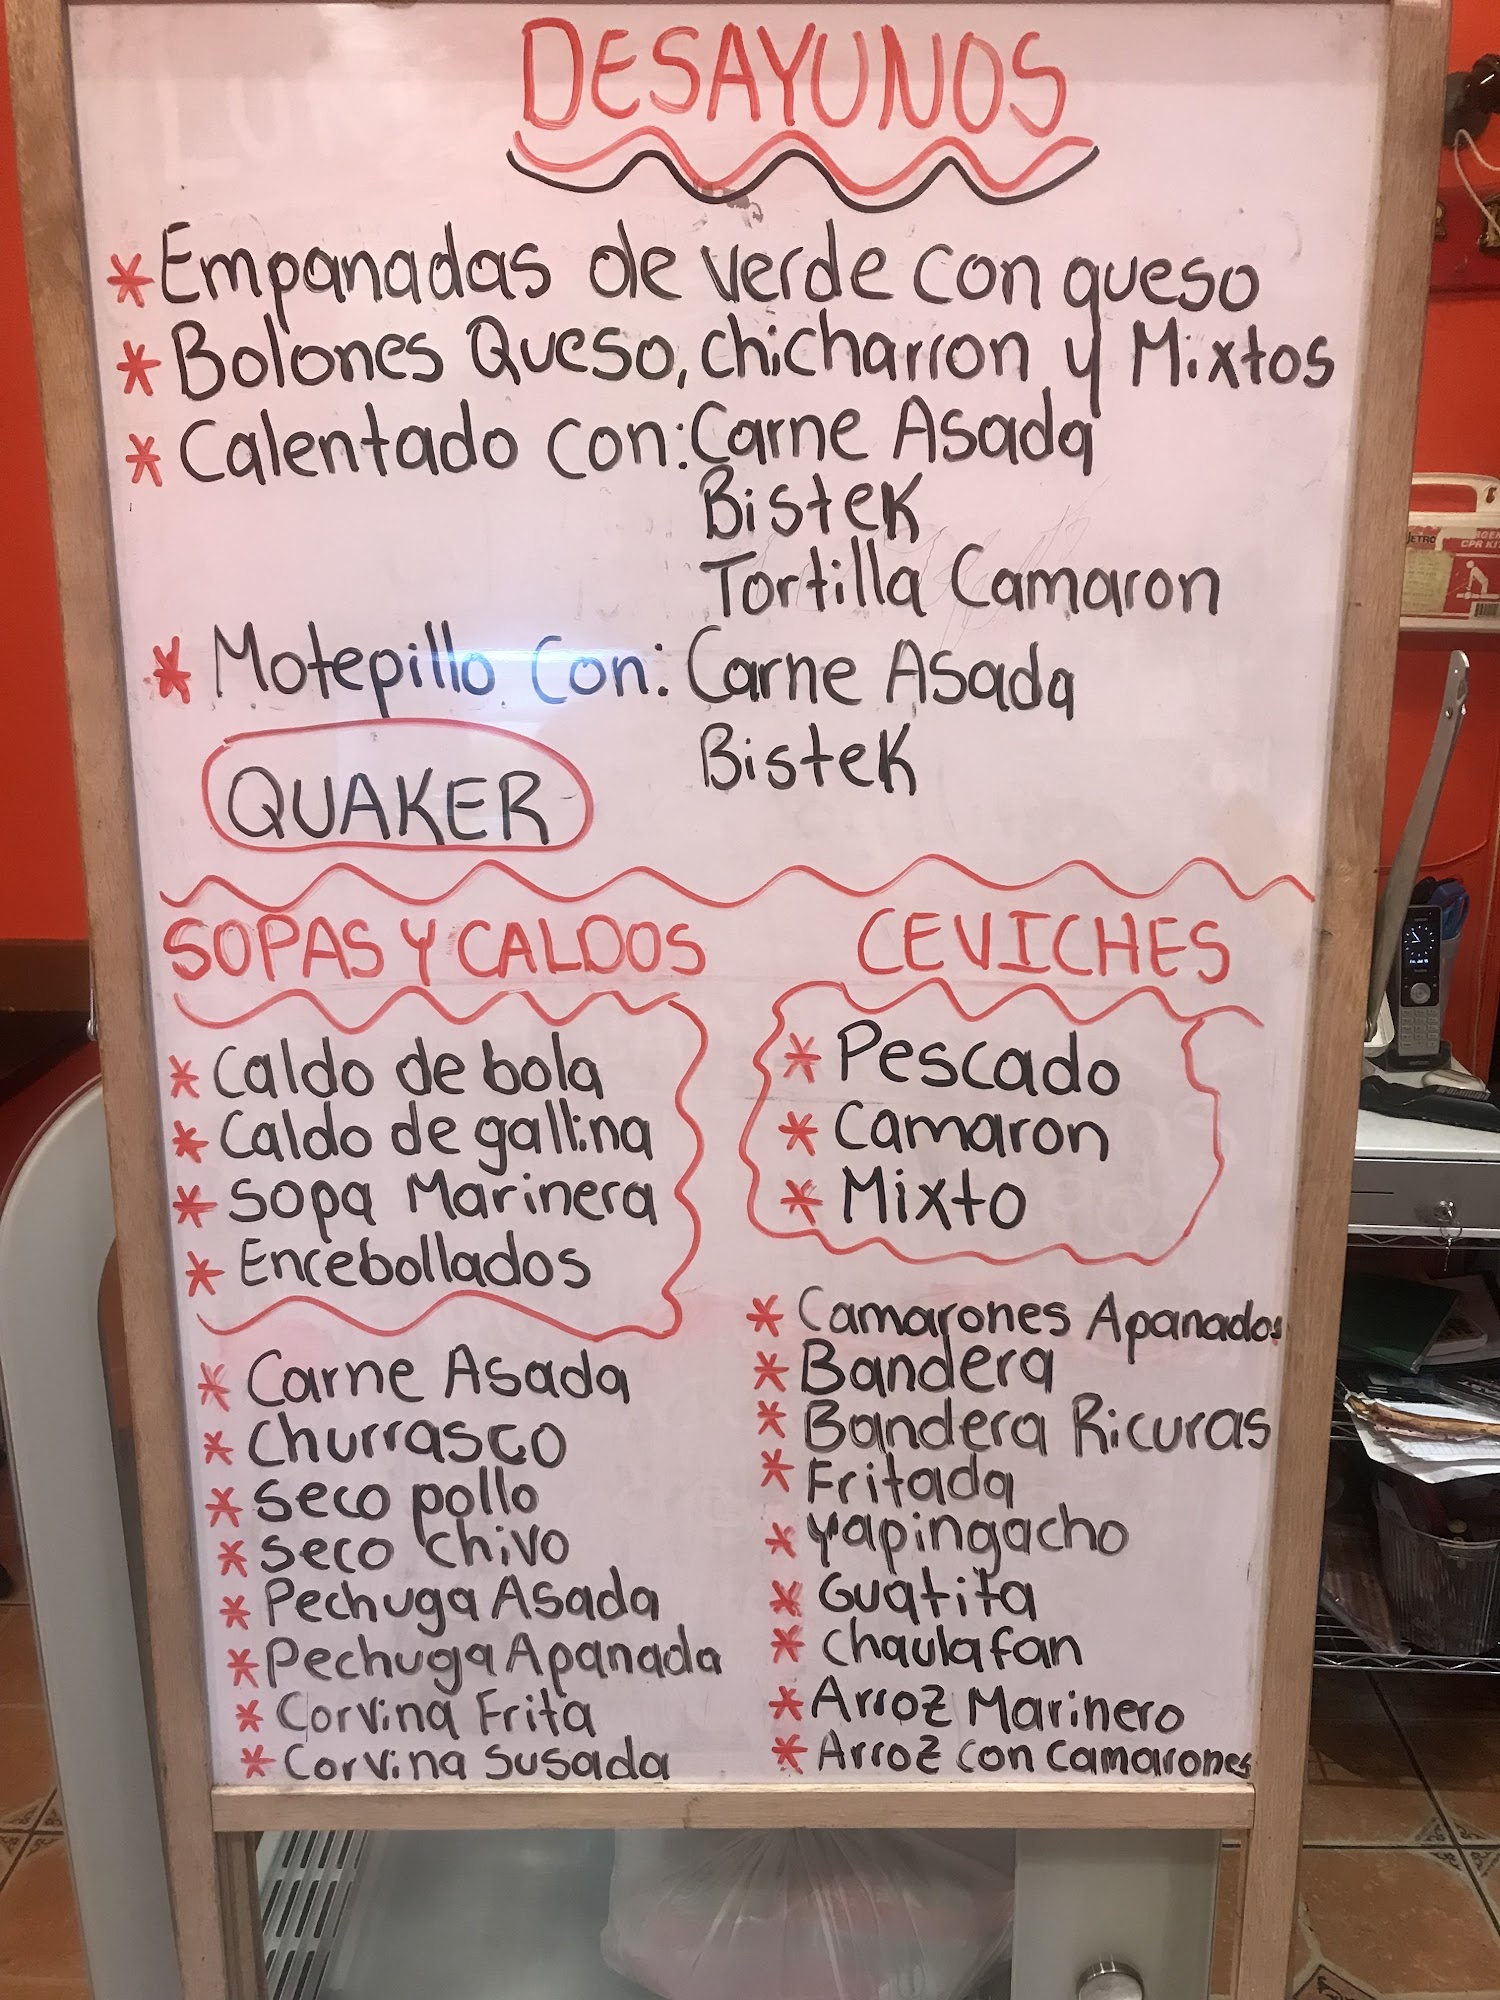 DESAYUNOS
* Empanadas de verde con queso
* Bolones Queso, chicharron y Mixtos
* Calentado con: Carne Asada
Bistek
Tortilla Camaron
* Motepillo con: Carne Asada
Bistek
QUAKER
SOPAS Y CALDOS
* Caldo de bola
* Caldo de gallina
* Sopa Marinera
* Encebollados
CEVICHES
* Pescado
* Camaron
* Mixto
* Carne Asada
* Churrasco
* Seco pollo
* Seco chivo
* Pechuga Asada
* Pechuga Apanada
* Corvina Frita
* Corvina Susada
* Camarones Apanados
* Bandera
* Bandera Ricuras
* Fritada
* Yapingacho
* Guatita
* Chaulafan
* Arroz Marinero
* Arroz con camarones
CPR KIT